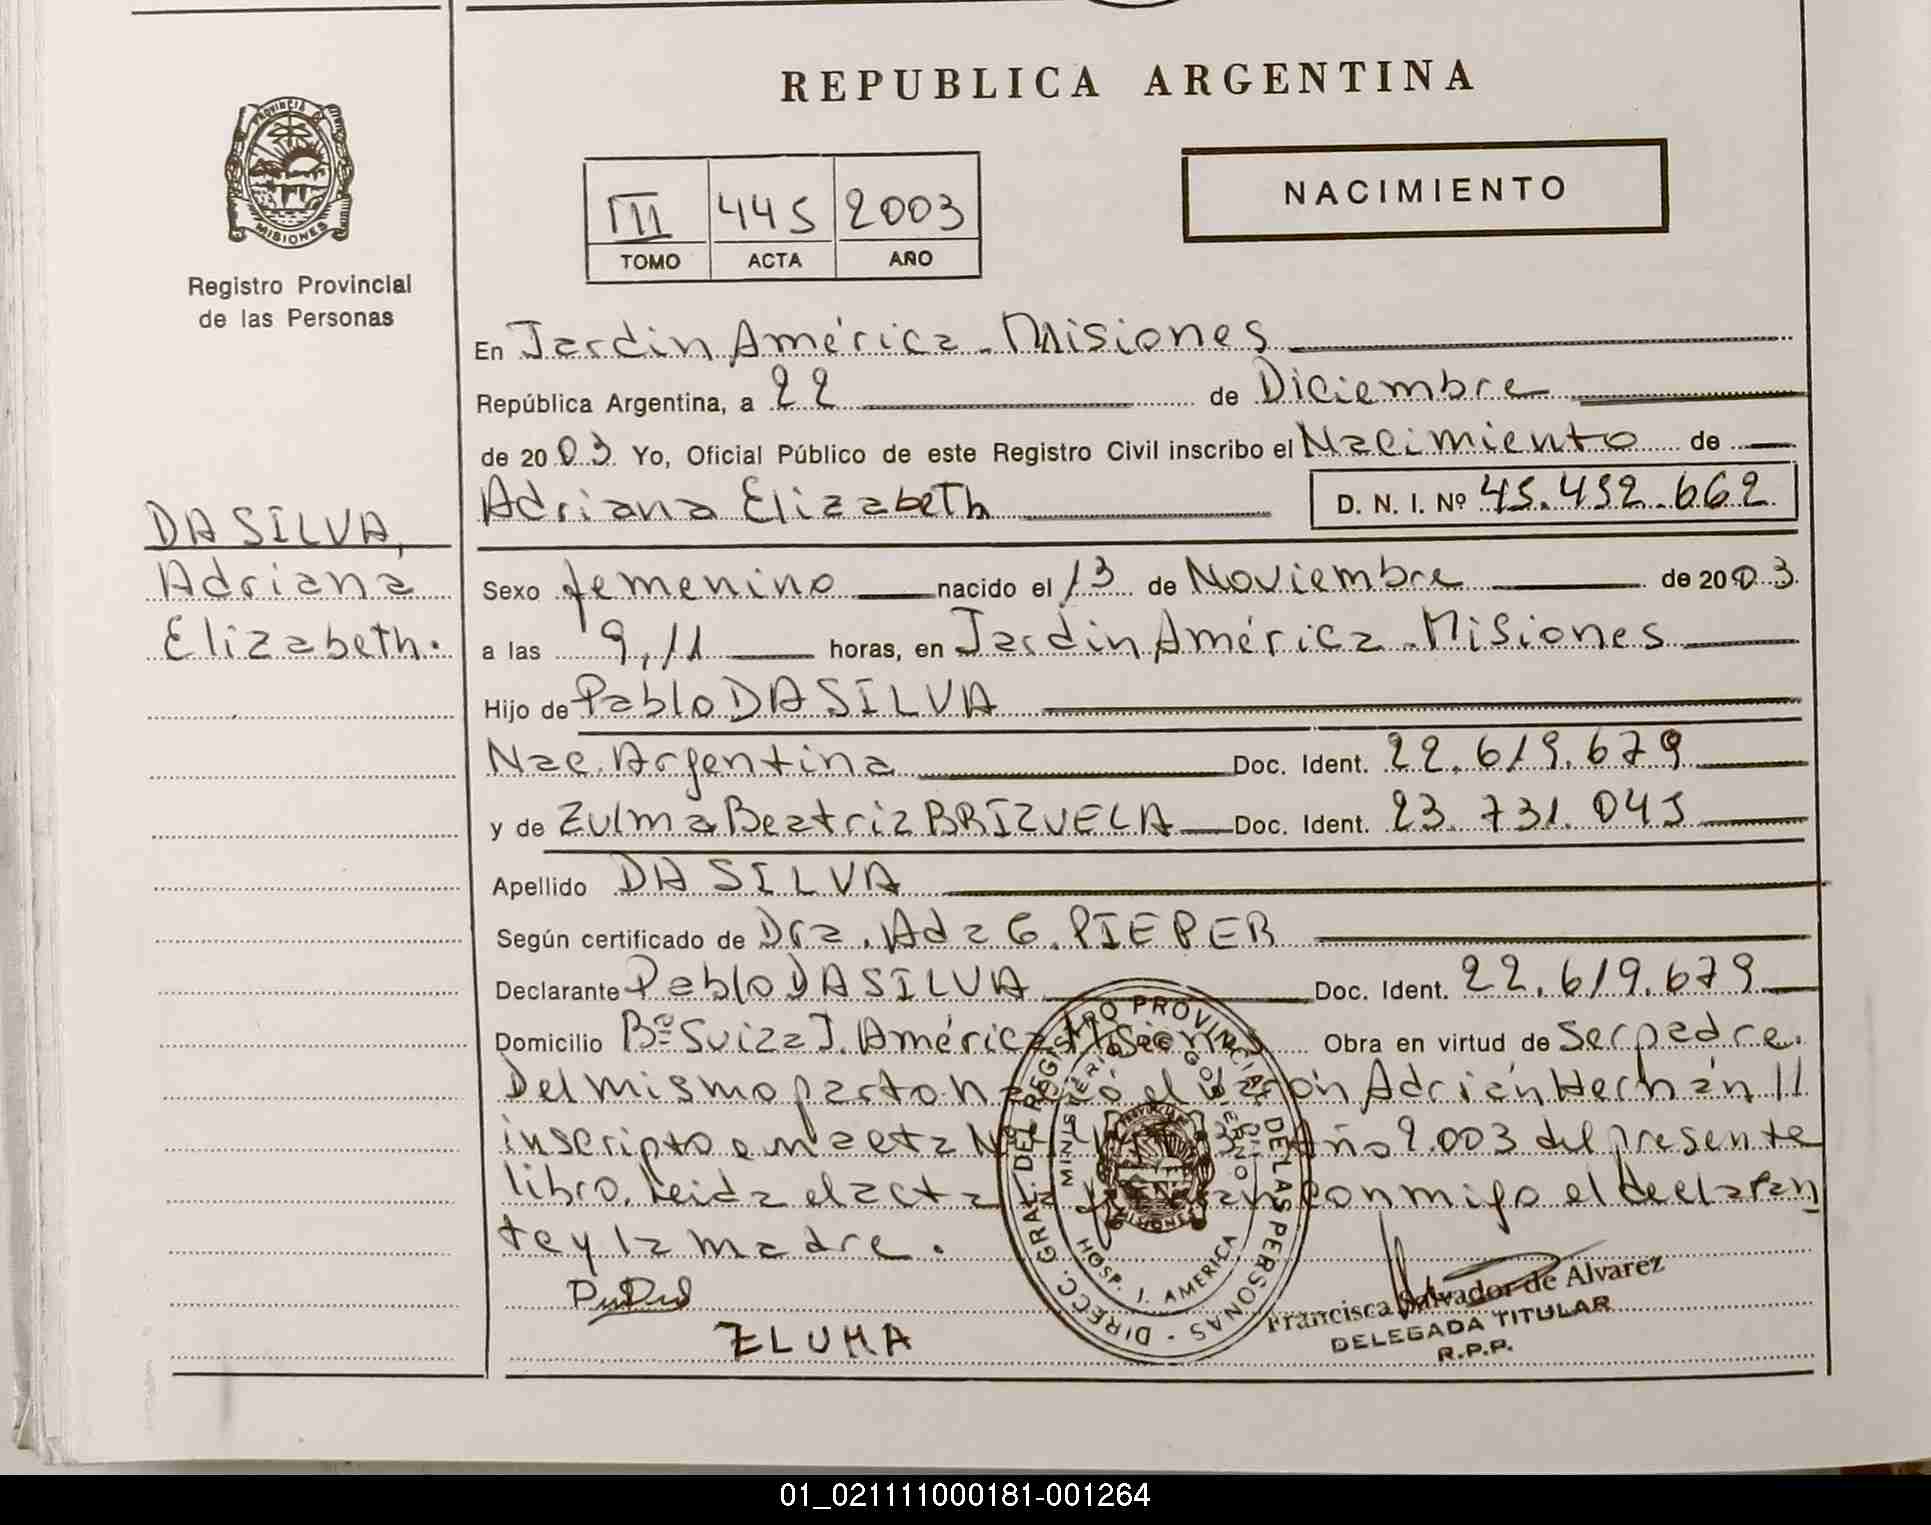 REPUBLICA ARGENTINA
PROVINCIA
MISIONES
Registro Provincial
de las Personas
III 445 2003
TOMO ACTA AÑO
NACIMIENTO
En Jardin América - Misiones
República Argentina, a 22 de Diciembre
de 2003 Yo, Oficial Público de este Registro Civil inscribo el Nacimiento de
Adriana Elizabeth D. N. I. Nº 45.452.662
DA SILVA,
Adriana
Elizabeth.
Sexo femenino nacido el 13 de Noviembre de 2003
a las 9,11 horas, en Jardin América - Misiones
Hijo de Pablo DA SILVA
Nac. Argentina Doc. Ident. 22.619.679
y de Zulma Beatriz BRIZUELA Doc. Ident. 23.731.045
Apellido DA SILVA
Según certificado de Dra. Ada G. PIEPER
Declarante Pablo DA SILVA Doc. Ident. 22.619.679
Domicilio Bº Suiza J. América Misiones Obra en virtud de Ser padre.
Del mismo parto nació el varón Adrián Hernán
inscripto en acta Año 2.003 del presente
libro. Leida el acta conmigo el declaran
te y la madre.
ZLUMA
DIRECC. GRAL. DEL REGISTRO PROVINCIAL DE LAS PERSONAS
MINISTERIO DE GOBIERNO
HOSP. J. AMERICA
Francisca Salvador de Alvarez
DELEGADA TITULAR
R.P.P.
01_021111000181-001264